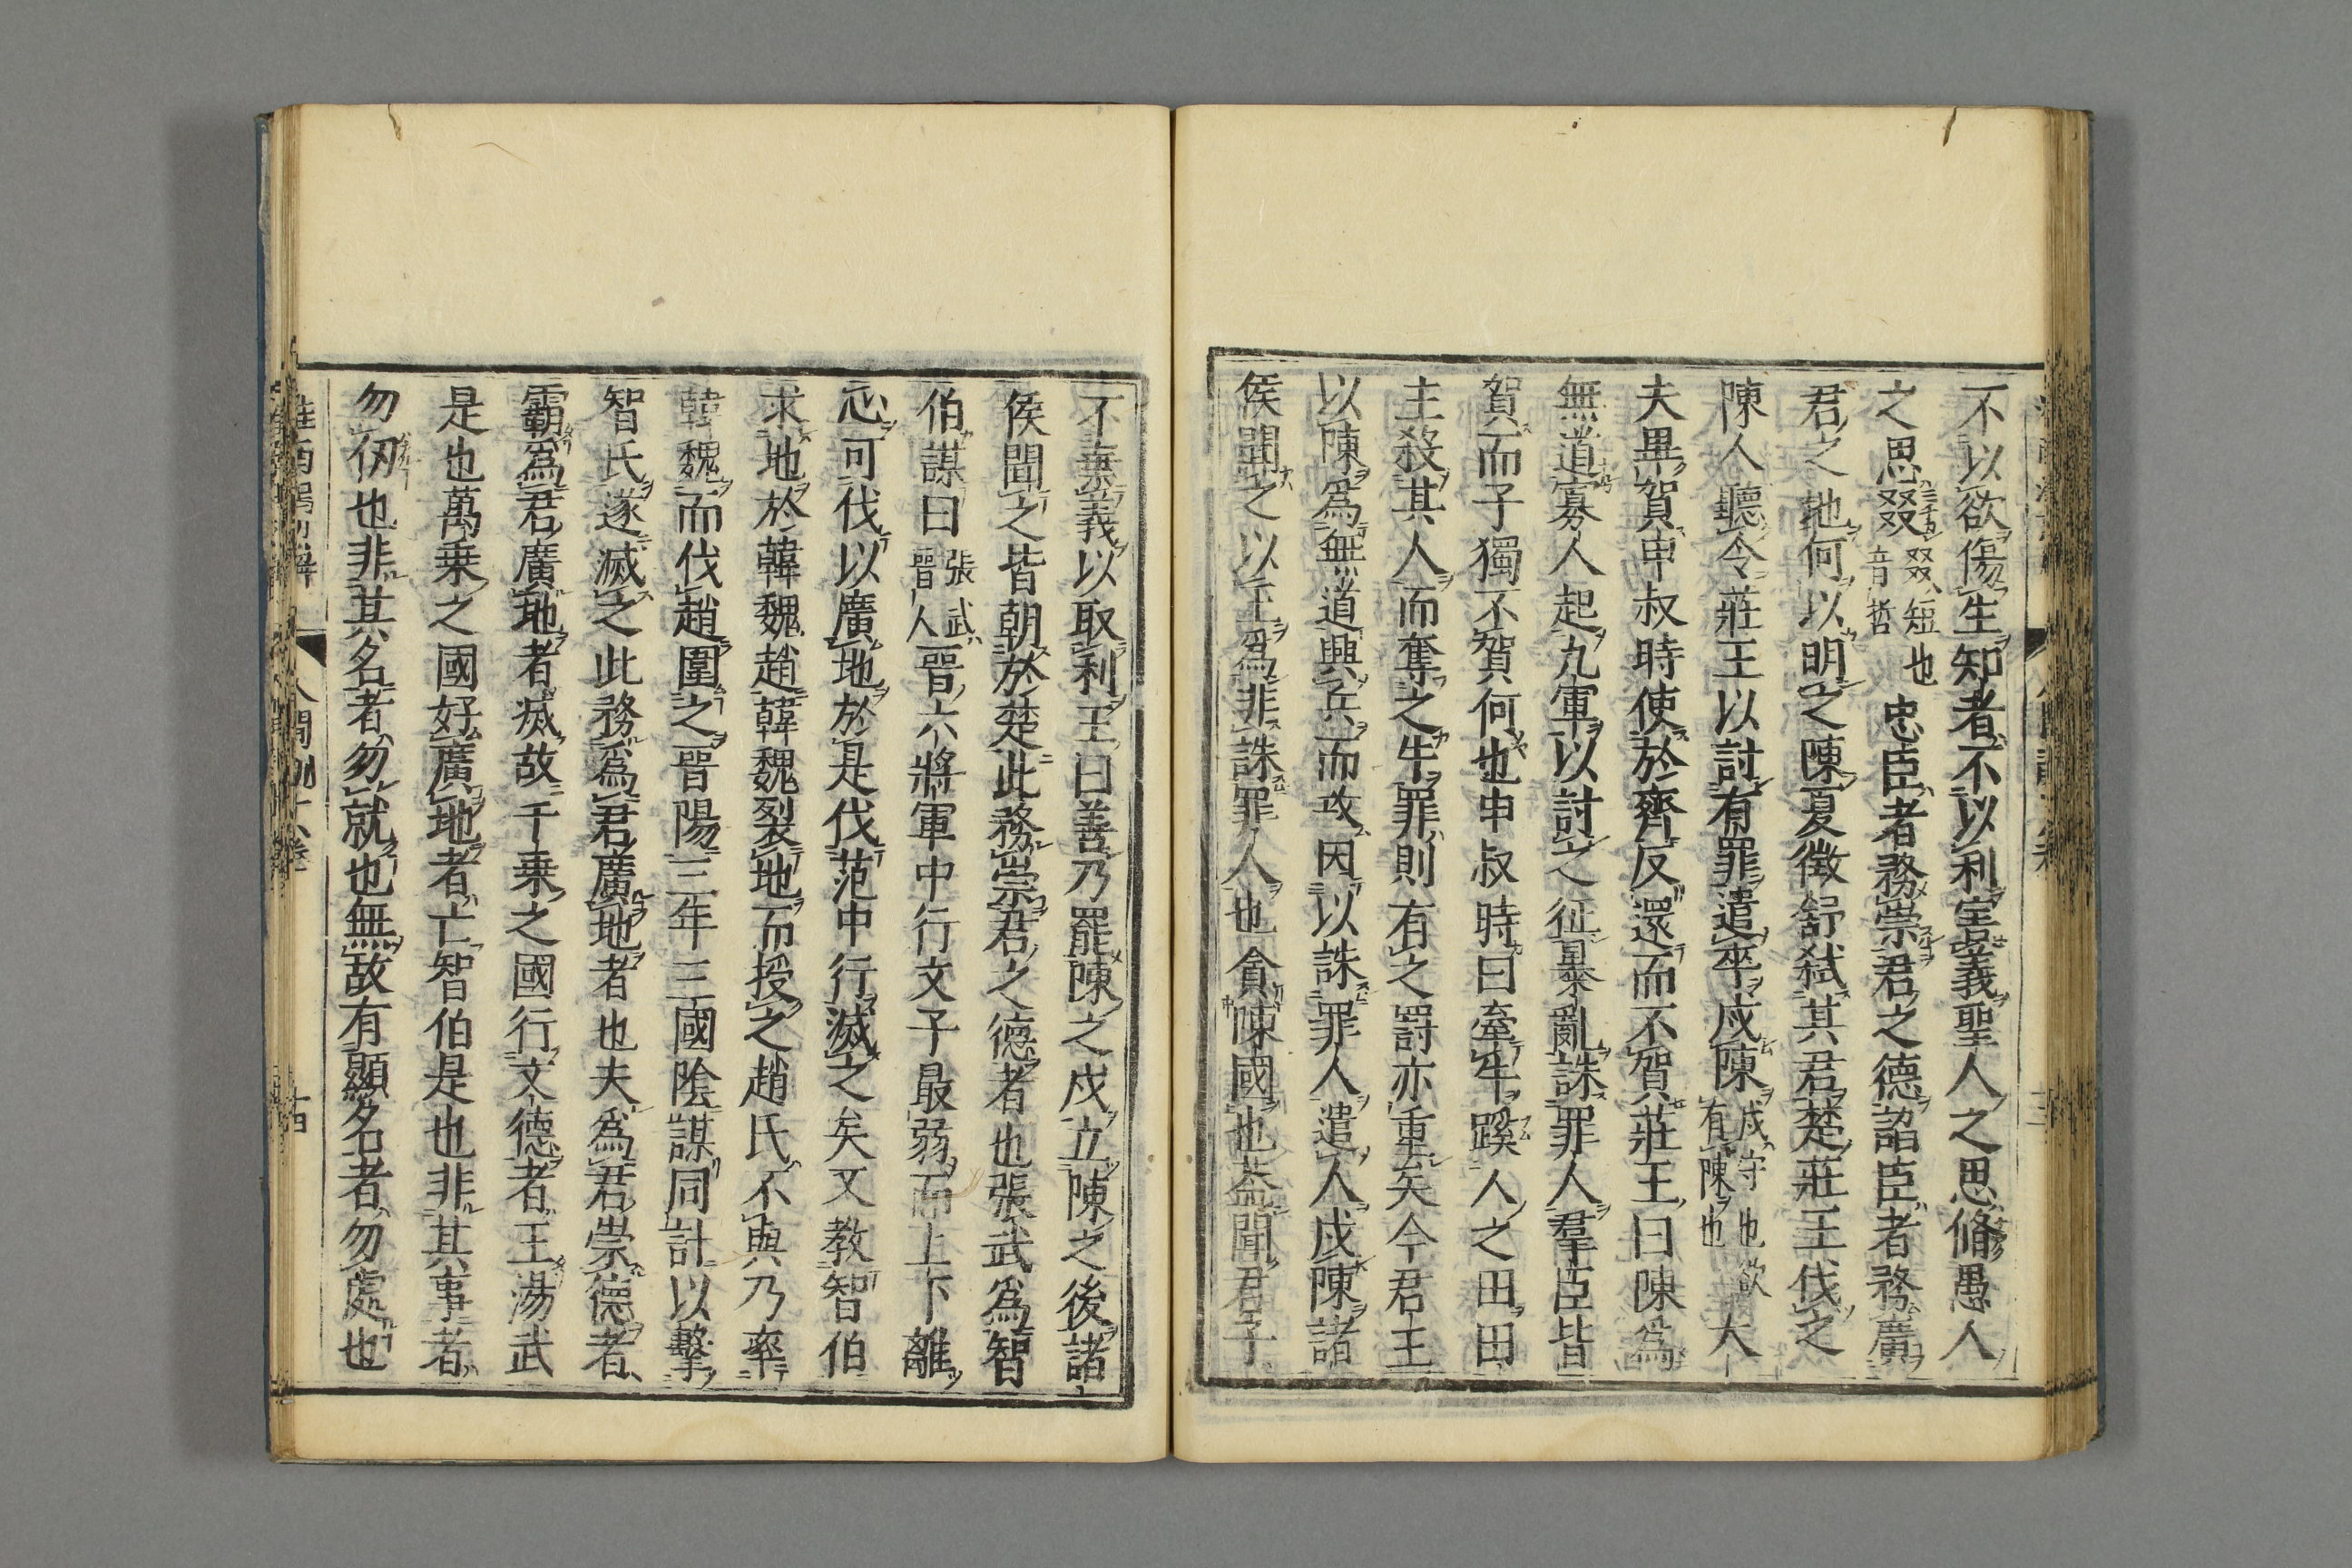 不以欲傷生知者不以利害義聖人之思脩愚人
之思叕叕短也音哲忠臣者務崇君之德諂臣者務廣
君之地何以明之陳夏徵舒弑其君楚莊王伐之
陳人聽令莊王以討有罪遣卒戍陳戍守也欲有陳也大
夫畢賀申叔時使於齊反還而不賀莊王曰陳爲
無道寡人起九軍以討之征暴亂誅罪人羣臣皆
賀而子獨不賀何也申叔時曰牽牛蹊人之田田
主殺其人而奪之牛罪則有之罸亦重矣今君王
以陳爲無道興兵而攻因以誅罪人遣人戍陳諸
侯聞之以王爲非誅罪人也貪陳國也葢聞君子
不棄義以取利王曰善乃罷陳之戍立陳之後諸
侯聞之皆朝於楚此務崇君之德者也張武爲智
伯謀曰張武晉人晉六將軍中行文子最弱而上下離
心可伐以廣地於是伐范中行滅之矣又教智伯
求地於韓魏趙韓魏裂地而授之趙氏不與乃率
韓魏而伐趙圍之晉陽三年三國陰謀同計以擊
智氏遂滅之此務爲君廣地者也夫爲君崇德者
霸爲君廣地者滅故千乗之國行文德者王湯武
是也萬乗之國好廣地者亡智伯是也非其事者
勿仞也非其名者勿就也無故有顯名者勿處也
人間訓十八卷
十四